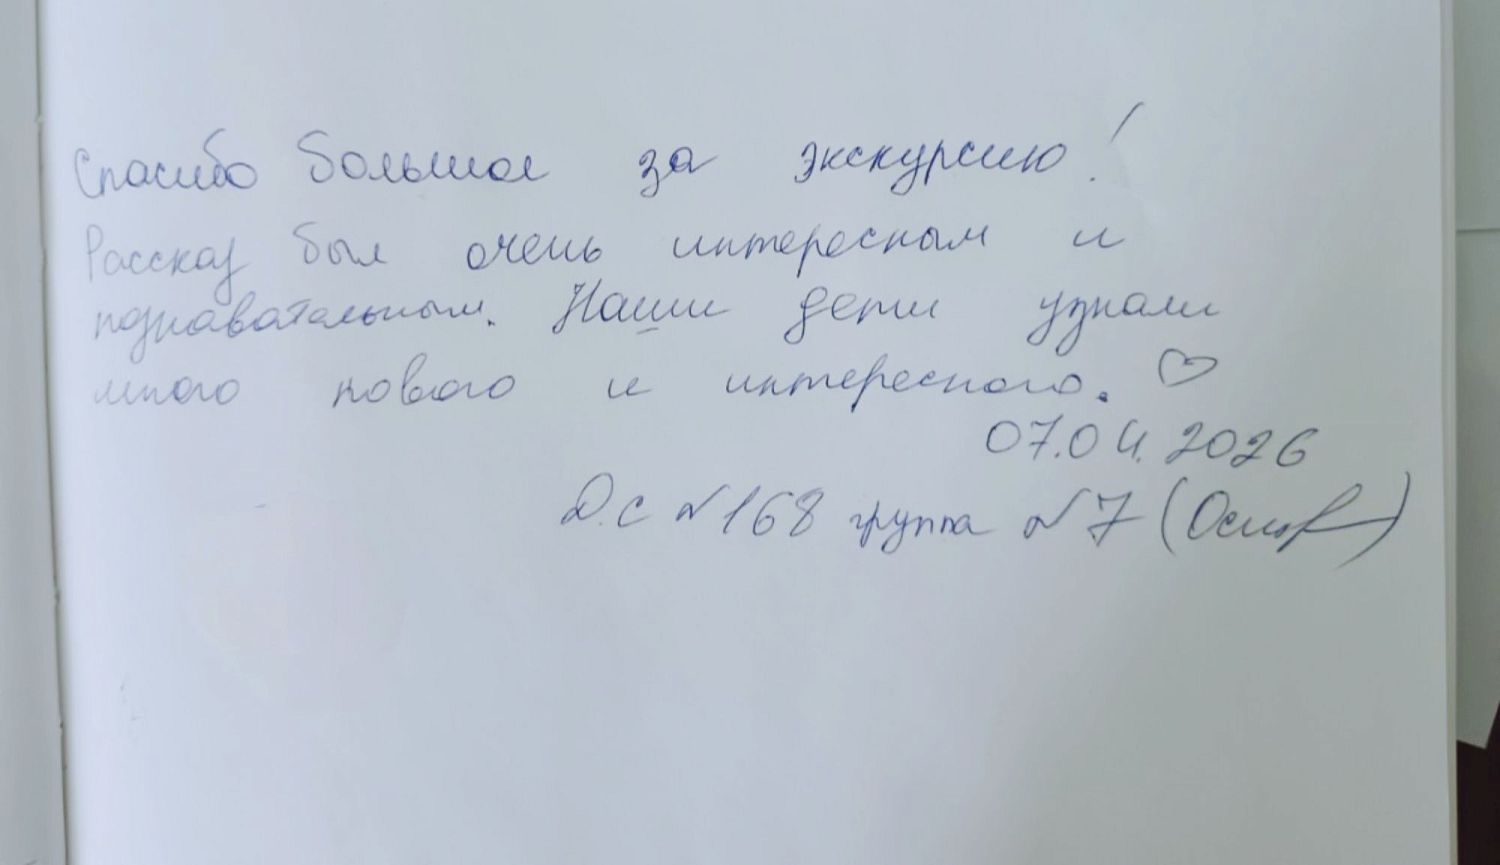 Спасибо большое за экскурсию!
Рассказ был очень интересным и
познавательным. Наши дети узнали
много нового и интересного. ♡
07.04.2026
Д.с №168 группа №7